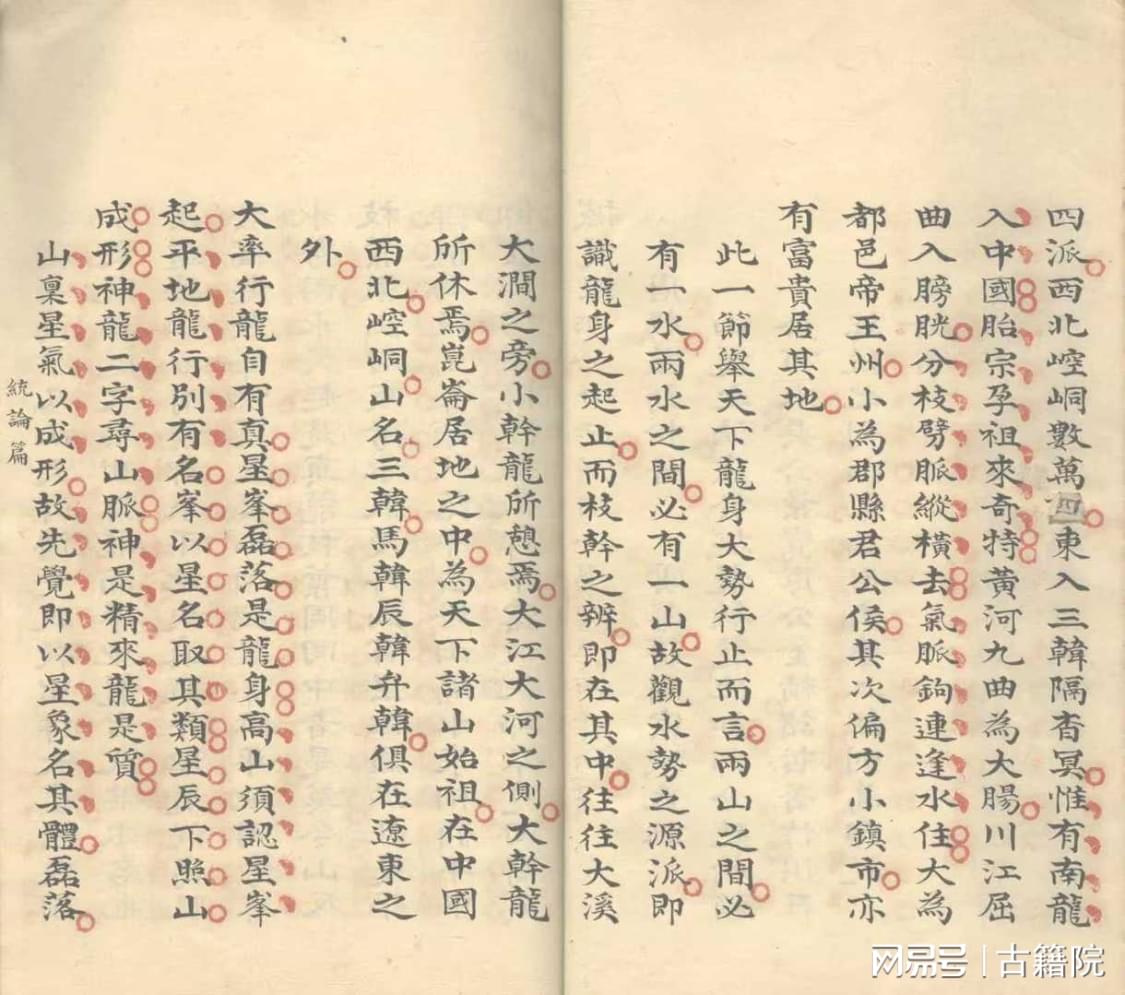 四派西北崆峒數萬四東入三韓隔杳冥惟有南龍
入中國胎宗孕祖來奇特黃河九曲為大腸川江屈
曲入膀胱分枝劈脈縱橫去氣脈鉤連逢水住大為
都邑帝王州小為郡縣君公侯其次偏方小鎮市亦
有富貴居其地
此一節舉天下龍身大勢行止而言兩山之間必
有一水兩水之間必有一山故觀水勢之源派即
識龍身之起止而枝幹之辨即在其中往往大溪
大澗之旁小幹龍所憩焉大江大河之側大幹龍
所休焉崑崙居地之中為天下諸山始祖在中國
西北崆峒山名三韓馬韓辰韓弁韓俱在遼東之
外
大率行龍自有真星峯磊落是龍身高山須認星峯
起平地龍行別有名峯以星名取其類星辰下照山
成形神龍二字尋山脈神是精來龍是質
山稟星氣以成形故先覺即以星象名其體磊落
統論篇
网易号 | 古籍院